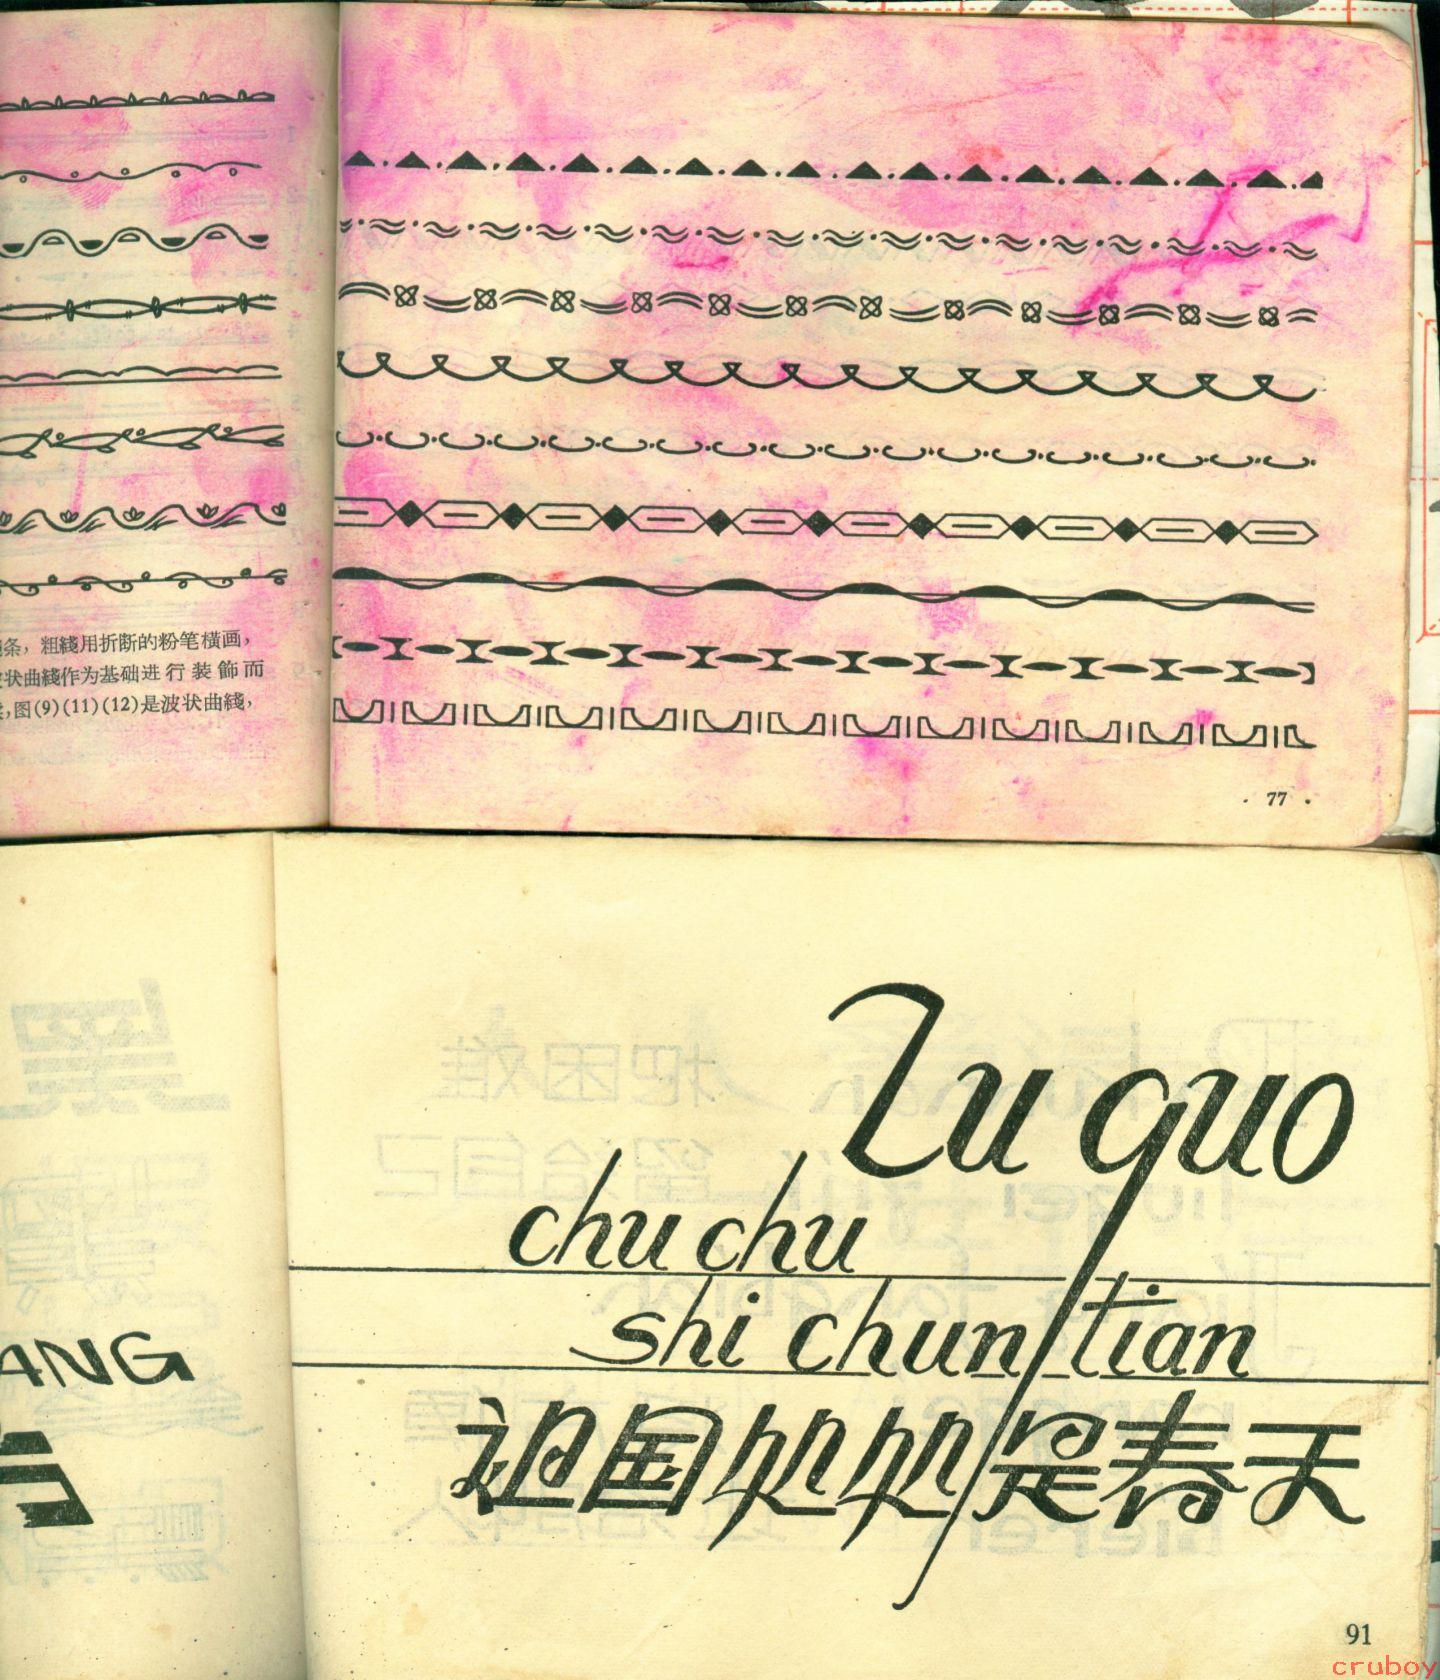 条，粗綫用折断的粉笔横画，
状曲綫作为基础进行装飾而
，图(9)(11)(12)是波状曲綫，
· 77 ·
Zu guo
chu chu
shi chun tian
祖国处处是春天
ANG
91
cruboy